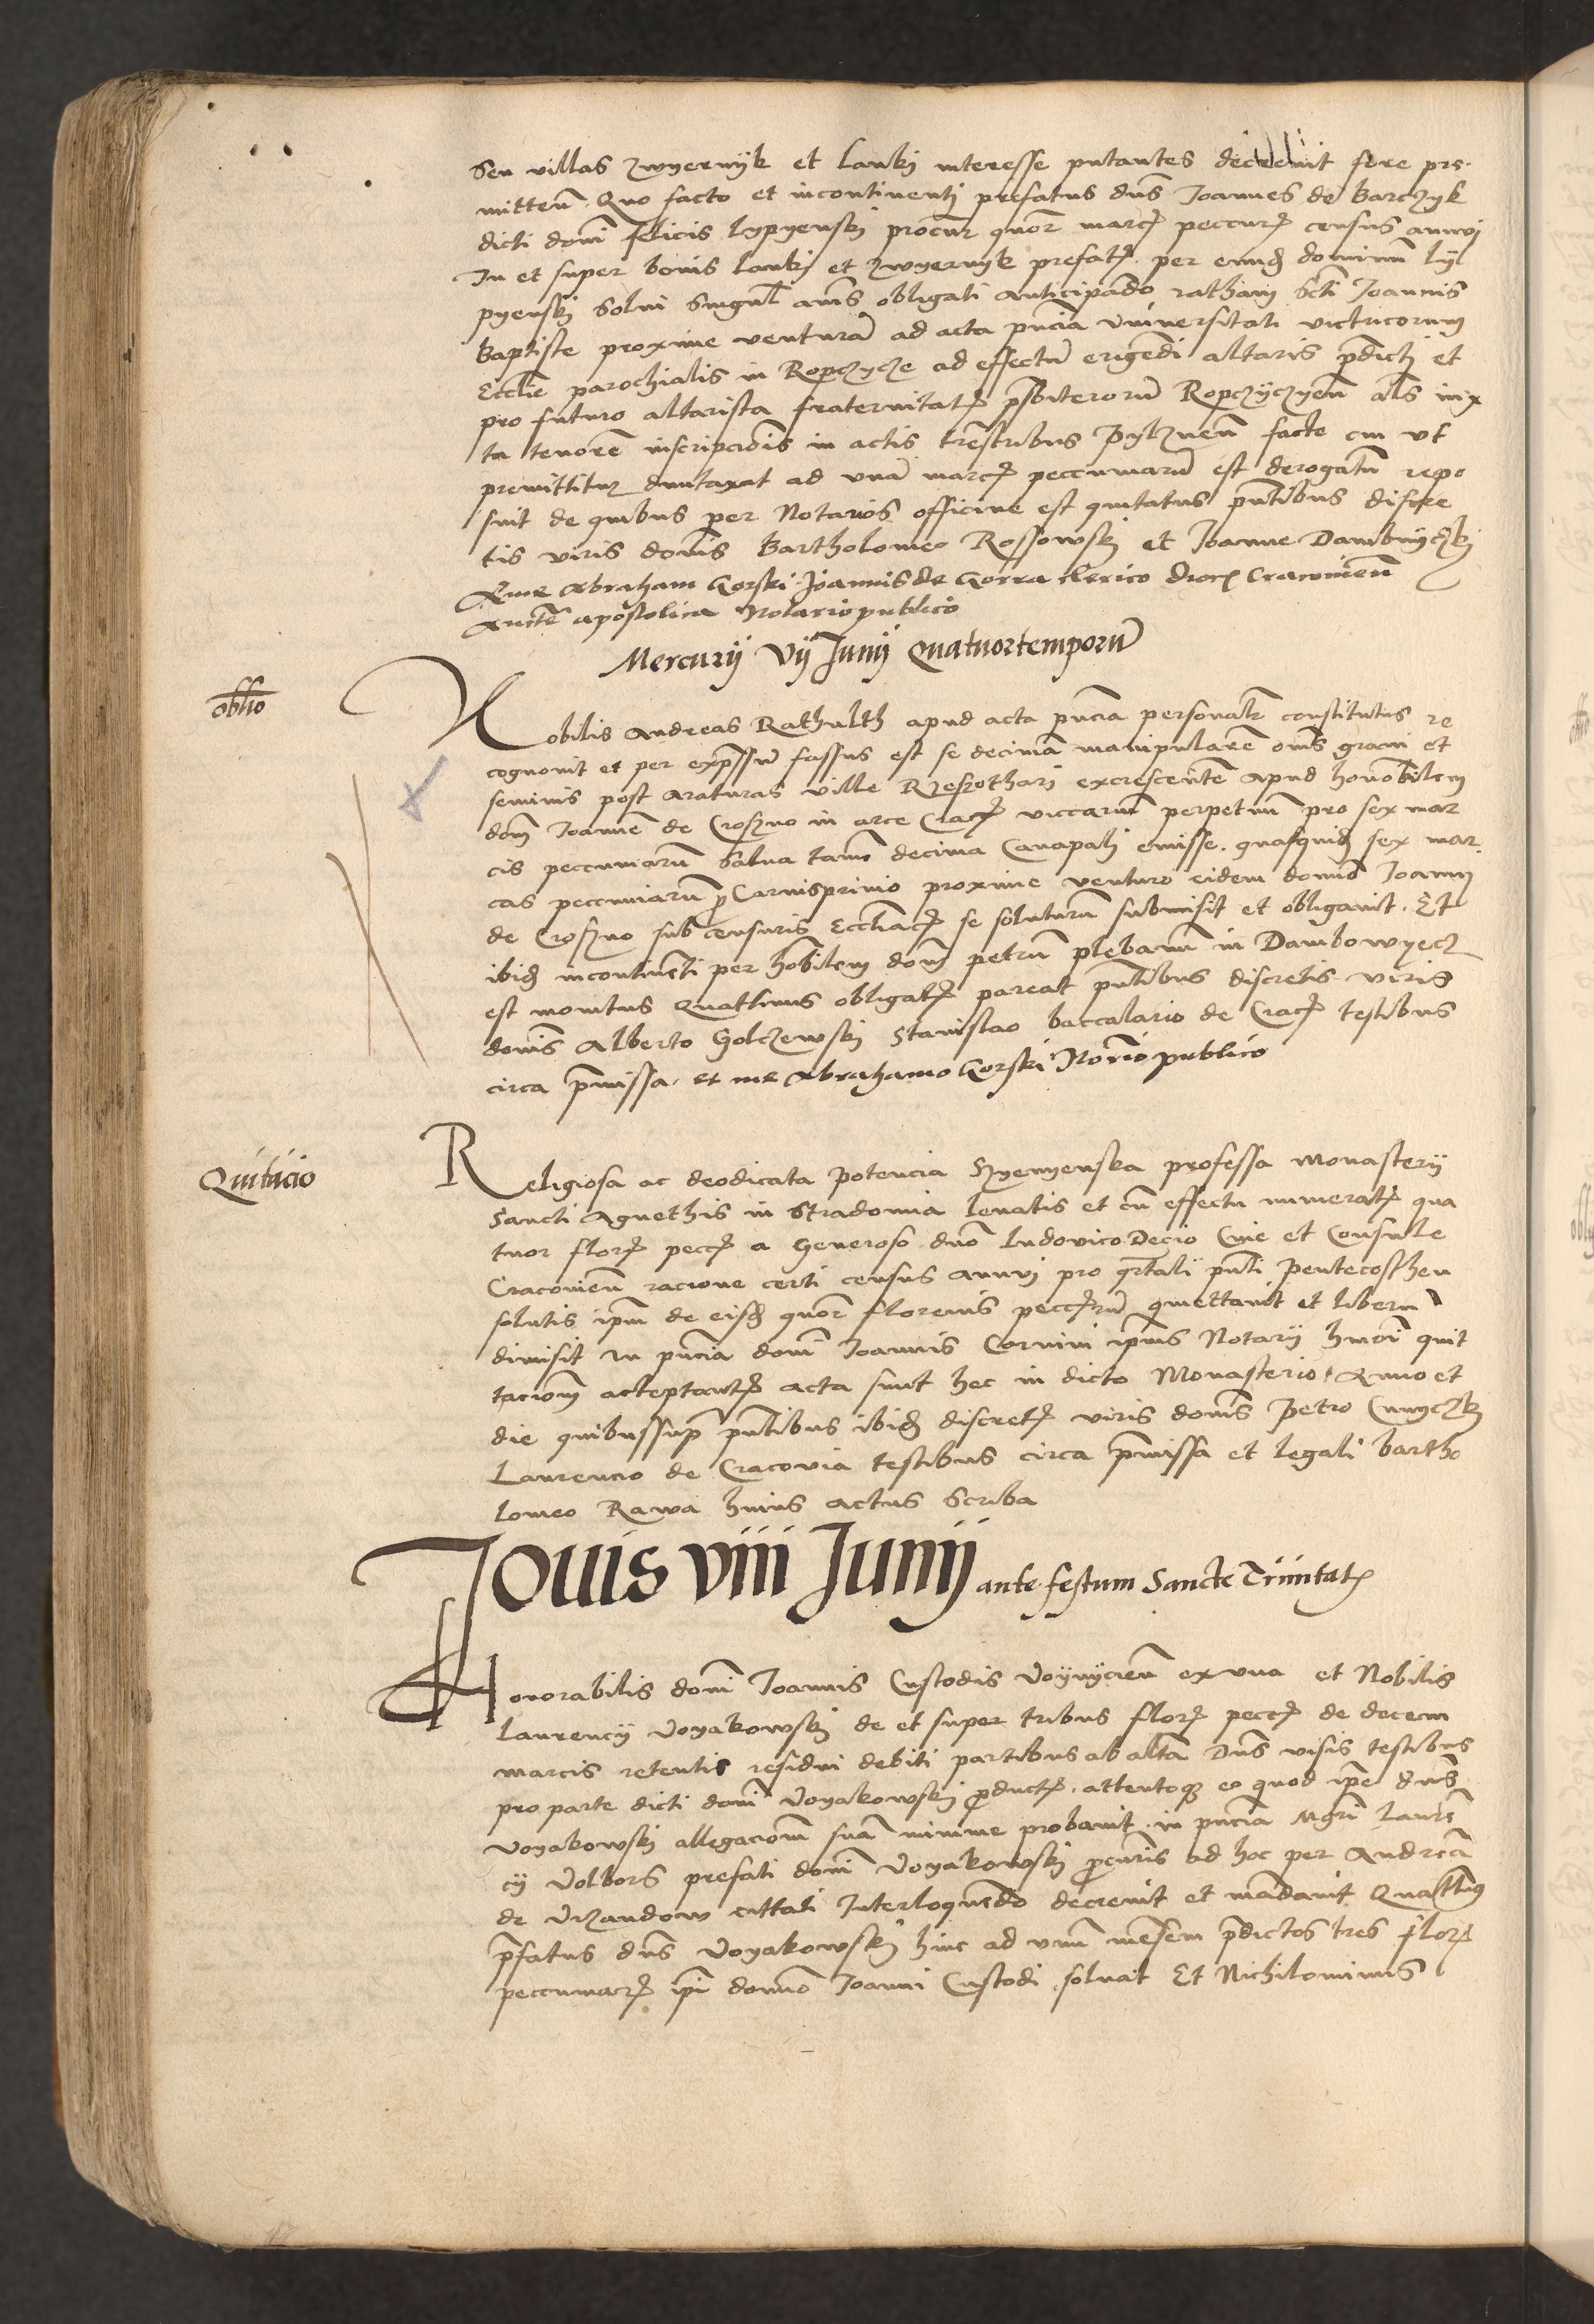 Seu villas Zwyernyk et Lanki interesse putantes decrevit fore pre-
mitten. Quo facto et incontinenti prefatus dns Joannes de Barczyk
dicti domi Felicis Lypyenski procur quor marcs peccur census annui
In et super bonis Lanki et Zwyernyk prefats per eund dominum Ly
pyenski solui singul anis obligati anticipando ratham Scti Joannis
Baptiste proxime ventura ad acta pncia universitati victricorum
Ecclie parochialis in Ropczycze ad effectu erigendi altaris pdicti et
pro futuro altarista fraternitats psbiteroru Ropczyczyen als iux
ta tenore inscripcionis in actis trestribus Pylznen facte cui ut
premittitur duntaxat ad una marcs peccuniaru est derogatu repo
suit de quibus per Notarios officine est quitatus pntibus discre
tis viris domis Bartholomeo Rossowski et Joanne Dambnyczki
Et me Abraham Gorski Joannis de Gorra clerico dioc Cracovien
aucte apostolica Notario publico
Mercurii vii Junii Quatuortemporu
oblio
Nobilis Andreas Rathulth apud acta pncia personalr constitutus re
cognovit et per expssu fassus est se decima manipulare omis grani et
seminis post araturas ville Rzeszothari excrescente apud honobilem
dom Joanne de Croszno in arce Crac viccariu perpetuu pro sex mar
cis peccuniaru Salua tamen decima Canapali emisse. quasquid sex mar
cas peccuniaru p Carnisprivio proxime venturo eidem domo Joanni
de Croszno sub censuris Eccliacs se soluturu submisit et obligavit. Et
ibid incontineti per hobilem dom petru plebanu in Dambowyecz
est monitus Quathinus obligats pareat pntibus discretis viris
domis Alberto Golczewski Stanislao baccalario de Crac testibus
circa pmissa. et me Abrahamo Gorski Norio publico
Quitacio
Religiosa ac deodicata Potencia Szyenyenska professa Monasterii
Sancti Agnethis in Stradomia levatis et cu effectu numerats qua
tuor flors pecc a Generoso dno Ludovico Decio Cive et Consule
Cracovien racione certi census annui pro qrtali pnti Pentecosthen
solutis ipm de eisd quor florenis peccru quiettavit et liberu
dimisit In pncia domi Joannis Cornini ipius Notarii hmoi quit
taciom acceptants acta sunt hec in dicto Monasterio Anno et
die quibussup pntibus ibid discrets viris domis Petro Cunyczki
Laurencio de Cracovia testibus circa pmissa et legali bartho
lomeo Rawa huius actus Scriba
Jovis viii Junii ante festum Sancte Trinitats
Honorabilis domi Joannis Custodis Voynycien ex una et Nobilis
Laurencii Voyakowski de et super tribus flors pecc de decem
marcis retentis residui debiti partibus ab alta Dns visis testibus
pro parte dicti domi Voyakowski pducts. attentoque eo quod ipe dns
Voyakowski allegaciom sua minime probavit. in pncia Mgri Lauren
cii Volbors prefati domi Voyakowski pcuris ad hoc per Andrea
de Vrzandow cittati Interloquendo decrevit et mandavit Quattinus
pfatus dns Voyakowski hinc ad unu mesem pdictos tres flors
peccuniars ipi domo Joanni Custodi soluat Et Nichilominus